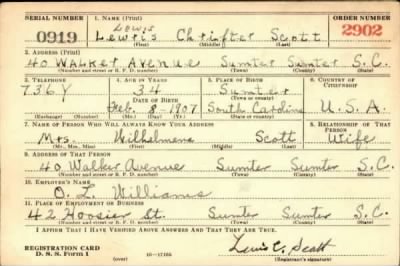 SERIAL NUMBER 1. NAME (Print) ORDER NUMBER
Lewis
0919 Lewris Chrisfter Scott 2902
(First) (Middle) (Last)
2. ADDRESS (Print)
40 Walker Avenue Sumter Sumter S.C.
(Number and street or R. F. D. number) (Town) (County) (State)
3. TELEPHONE 4. AGE IN YEARS 5. PLACE OF BIRTH 6. COUNTRY OF CITIZENSHIP
736Y 34 Sumter
(Town or county)
DATE OF BIRTH
Feb. 8 1907 South Carolina U.S.A.
(Exchange) (Number) (Mo.) (Day) (Yr.) (State or country)
7. NAME OF PERSON WHO WILL ALWAYS KNOW YOUR ADDRESS 8. RELATIONSHIP OF THAT PERSON
Mrs. Wilhelmena Scott Wife
(Mr., Mrs., Miss) (First) (Middle) (Last)
9. ADDRESS OF THAT PERSON
40 Walker Avenue Sumter Sumter S.C.
(Number and street or R. F. D. number) (Town) (County) (State)
10. EMPLOYER'S NAME
O. L. Williams
11. PLACE OF EMPLOYMENT OR BUSINESS
42 Hoosier St. Sumter Sumter S.C.
(Number and street or R. F. D. number) (Town) (County) (State)
I AFFIRM THAT I HAVE VERIFIED ABOVE ANSWERS AND THAT THEY ARE TRUE.
REGISTRATION CARD
D. S. S. Form 1 (over) 16—17105 Lewis C. Scott
(Registrant's signature)